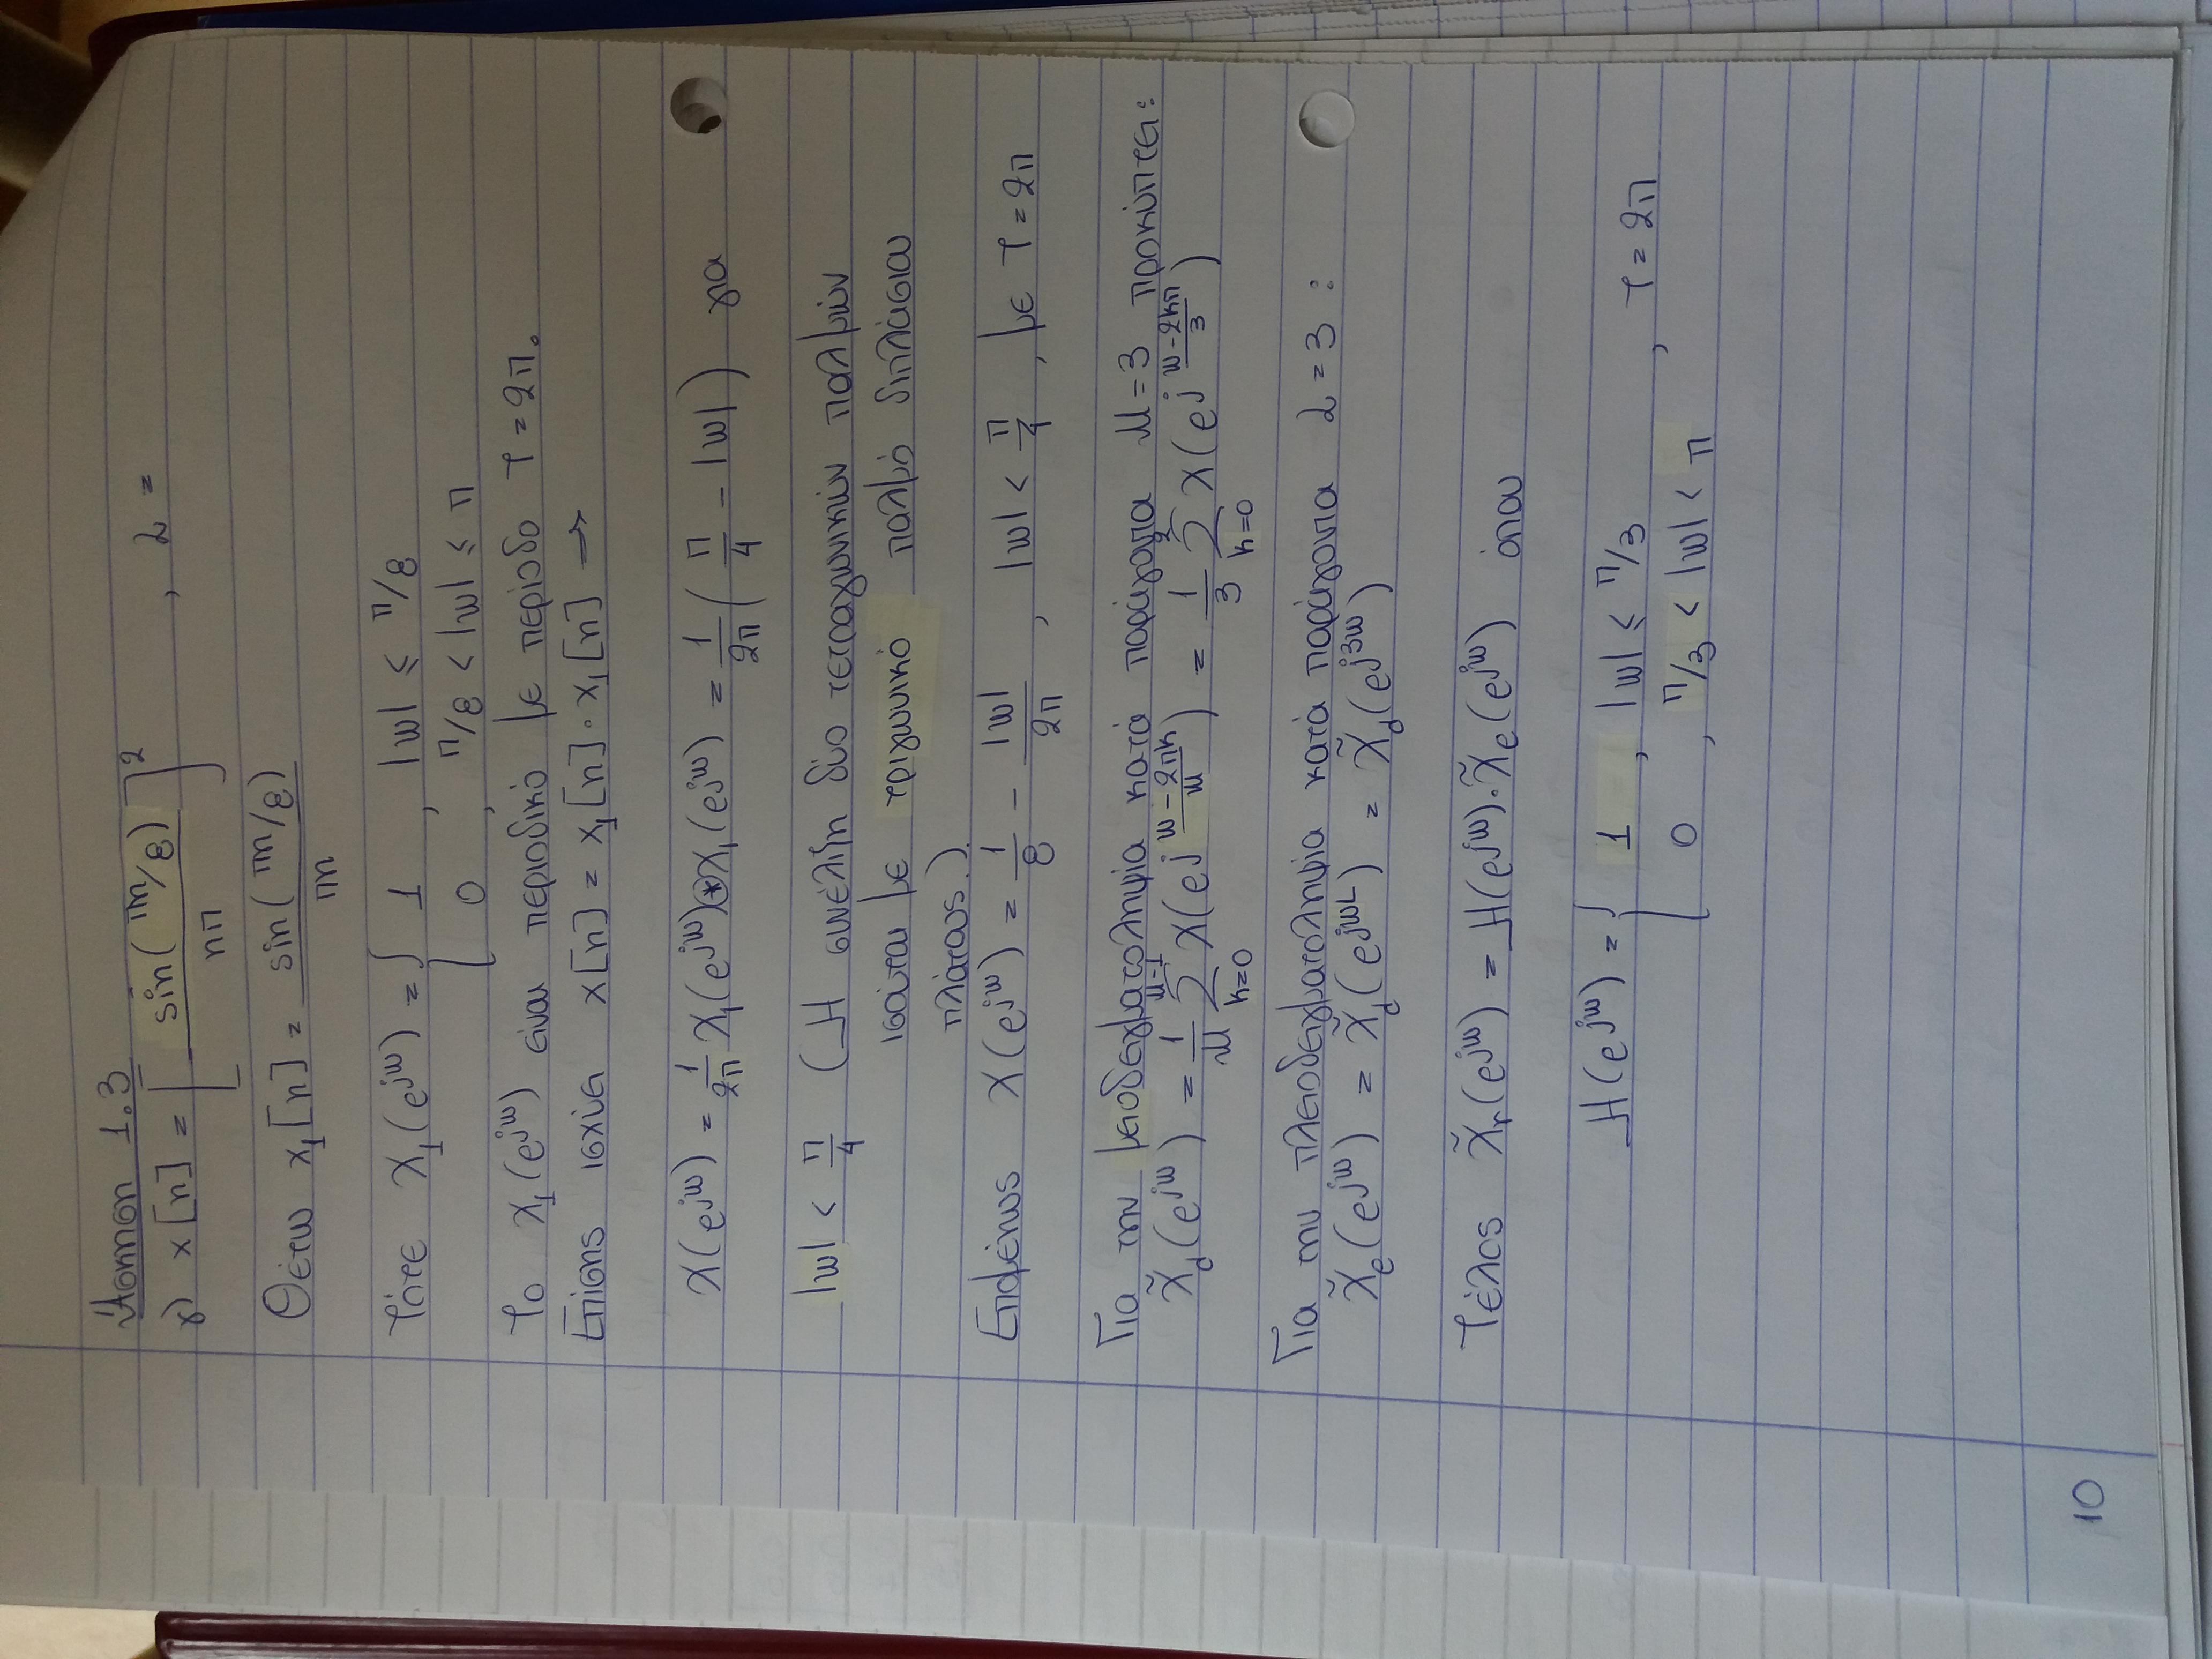 Άσκηση 1.3
γ) x[n] = [ sin(πn/8) / nπ ]² , L =
Θέτω x₁[n] = sin(πn/8) / πn
Τότε X₁(e^{jω}) = { 1 , |ω| ≤ π/8
0 , π/8 < |ω| ≤ π
Το X₁(e^{jω}) είναι περιοδικό με περίοδο T = 2π.
Επίσης ισχύει x[n] = x₁[n] · x₁[n] →
X(e^{jω}) = 1/2π X₁(e^{jω}) ⊛ X₁(e^{jω}) = 1/2π ( π/4 - |ω| ) για
|ω| < π/4 (Η συνέλιξη δύο τετραγωνικών παλμών
ισούται με τριγωνικό παλμό διπλάσιου
πλάτους.).
Επομένως X(e^{jω}) = 1/8 - |ω|/2π , |ω| < π/4 , με T = 2π
Για την μειοδειγματοληψία κατά παράγοντα M = 3 προκύπτει:
X̃_d(e^{jω}) = 1/M Σ_{k=0}^{M-1} X(e^{j (ω-2πk)/M}) = 1/3 Σ_{k=0}^{2} X(e^{j (ω-2kπ)/3})
Για την πλειοδειγματοληψία κατά παράγοντα L = 3 :
X̃_e(e^{jω}) = X̃_d(e^{jωL}) = X̃_d(e^{j3ω})
Τέλος X̃_r(e^{jω}) = H(e^{jω}) · X̃_e(e^{jω}) όπου
H(e^{jω}) = { 1 , |ω| ≤ π/3 , T = 2π
0 , π/3 < |ω| < π
10